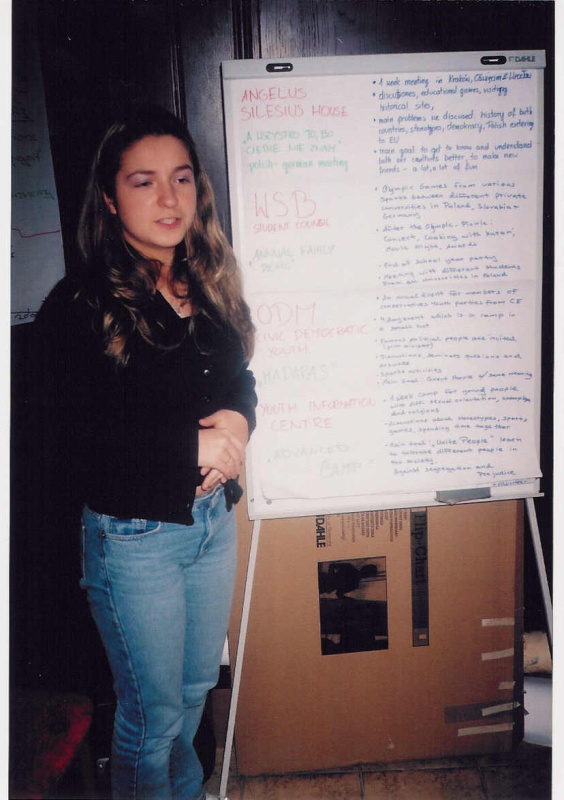 DAHLE
ANGELUS
SILESIUS HOUSE
"A WSZYSTKO TO, BO
CIEBIE NIE ZNAM"
polish-german meeting
• 1 week meeting in Kraków, Oświęcim & Wrocław
• discussions, educational games, visiting
historical sites,
• main problems we discussed: history of both
countries, stereotypes, democracy, Polish entering
to EU
• main goal: to get to know and understand
both our cultures better, to make new
friends - a lot, a lot of fun
WSB
STUDENT COUNCIL
"ANNUAL FAMILY
PICNIC"
• Olympic Games from various
Sports between different private
universities in Poland, Slovakia
Germany
• After the Olympic - Picnic:
Concert, Cooking with
Awards
• End of School year party
• Meeting with different students
from universities in Poland
ODM
CIVIC DEMOCRATIC
YOUTH
"MADARAS"
• An annual event for members of
conservatives Youth parties from CE
• 4 days event which is a camp in
a small hut
• Famous political people are invited
• Discussions, seminars, sessions and
• Sports activities
• Main goal:
YOUTH INFORMATION
CENTRE
"ADVANCED
CAMP"
• 1 week camp for young people
with diff. sexual orientation,
and religions
• discussions about stereotypes, sports,
games, spending time together
• Main goal: "Unite People" learn
to tolerate different people in
the society.
Against segregation and
Prejudice
DAHLE
Flip-Chart